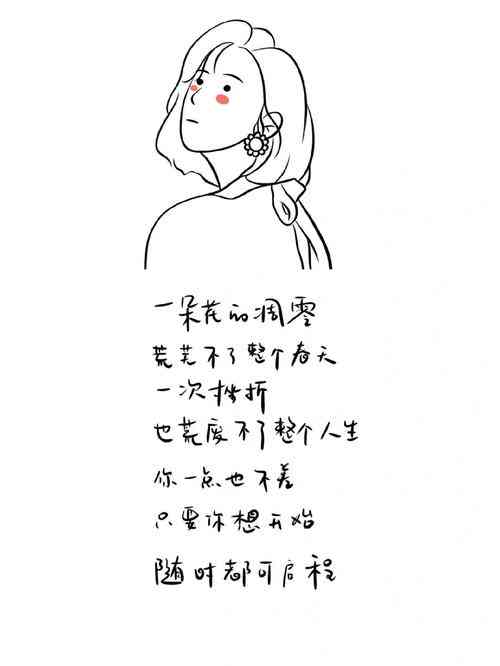 一朵花的凋零
荒芜不了整个春天
一次挫折
也荒废不了整个人生
你一点也不差
只要你想开始
随时都可启程